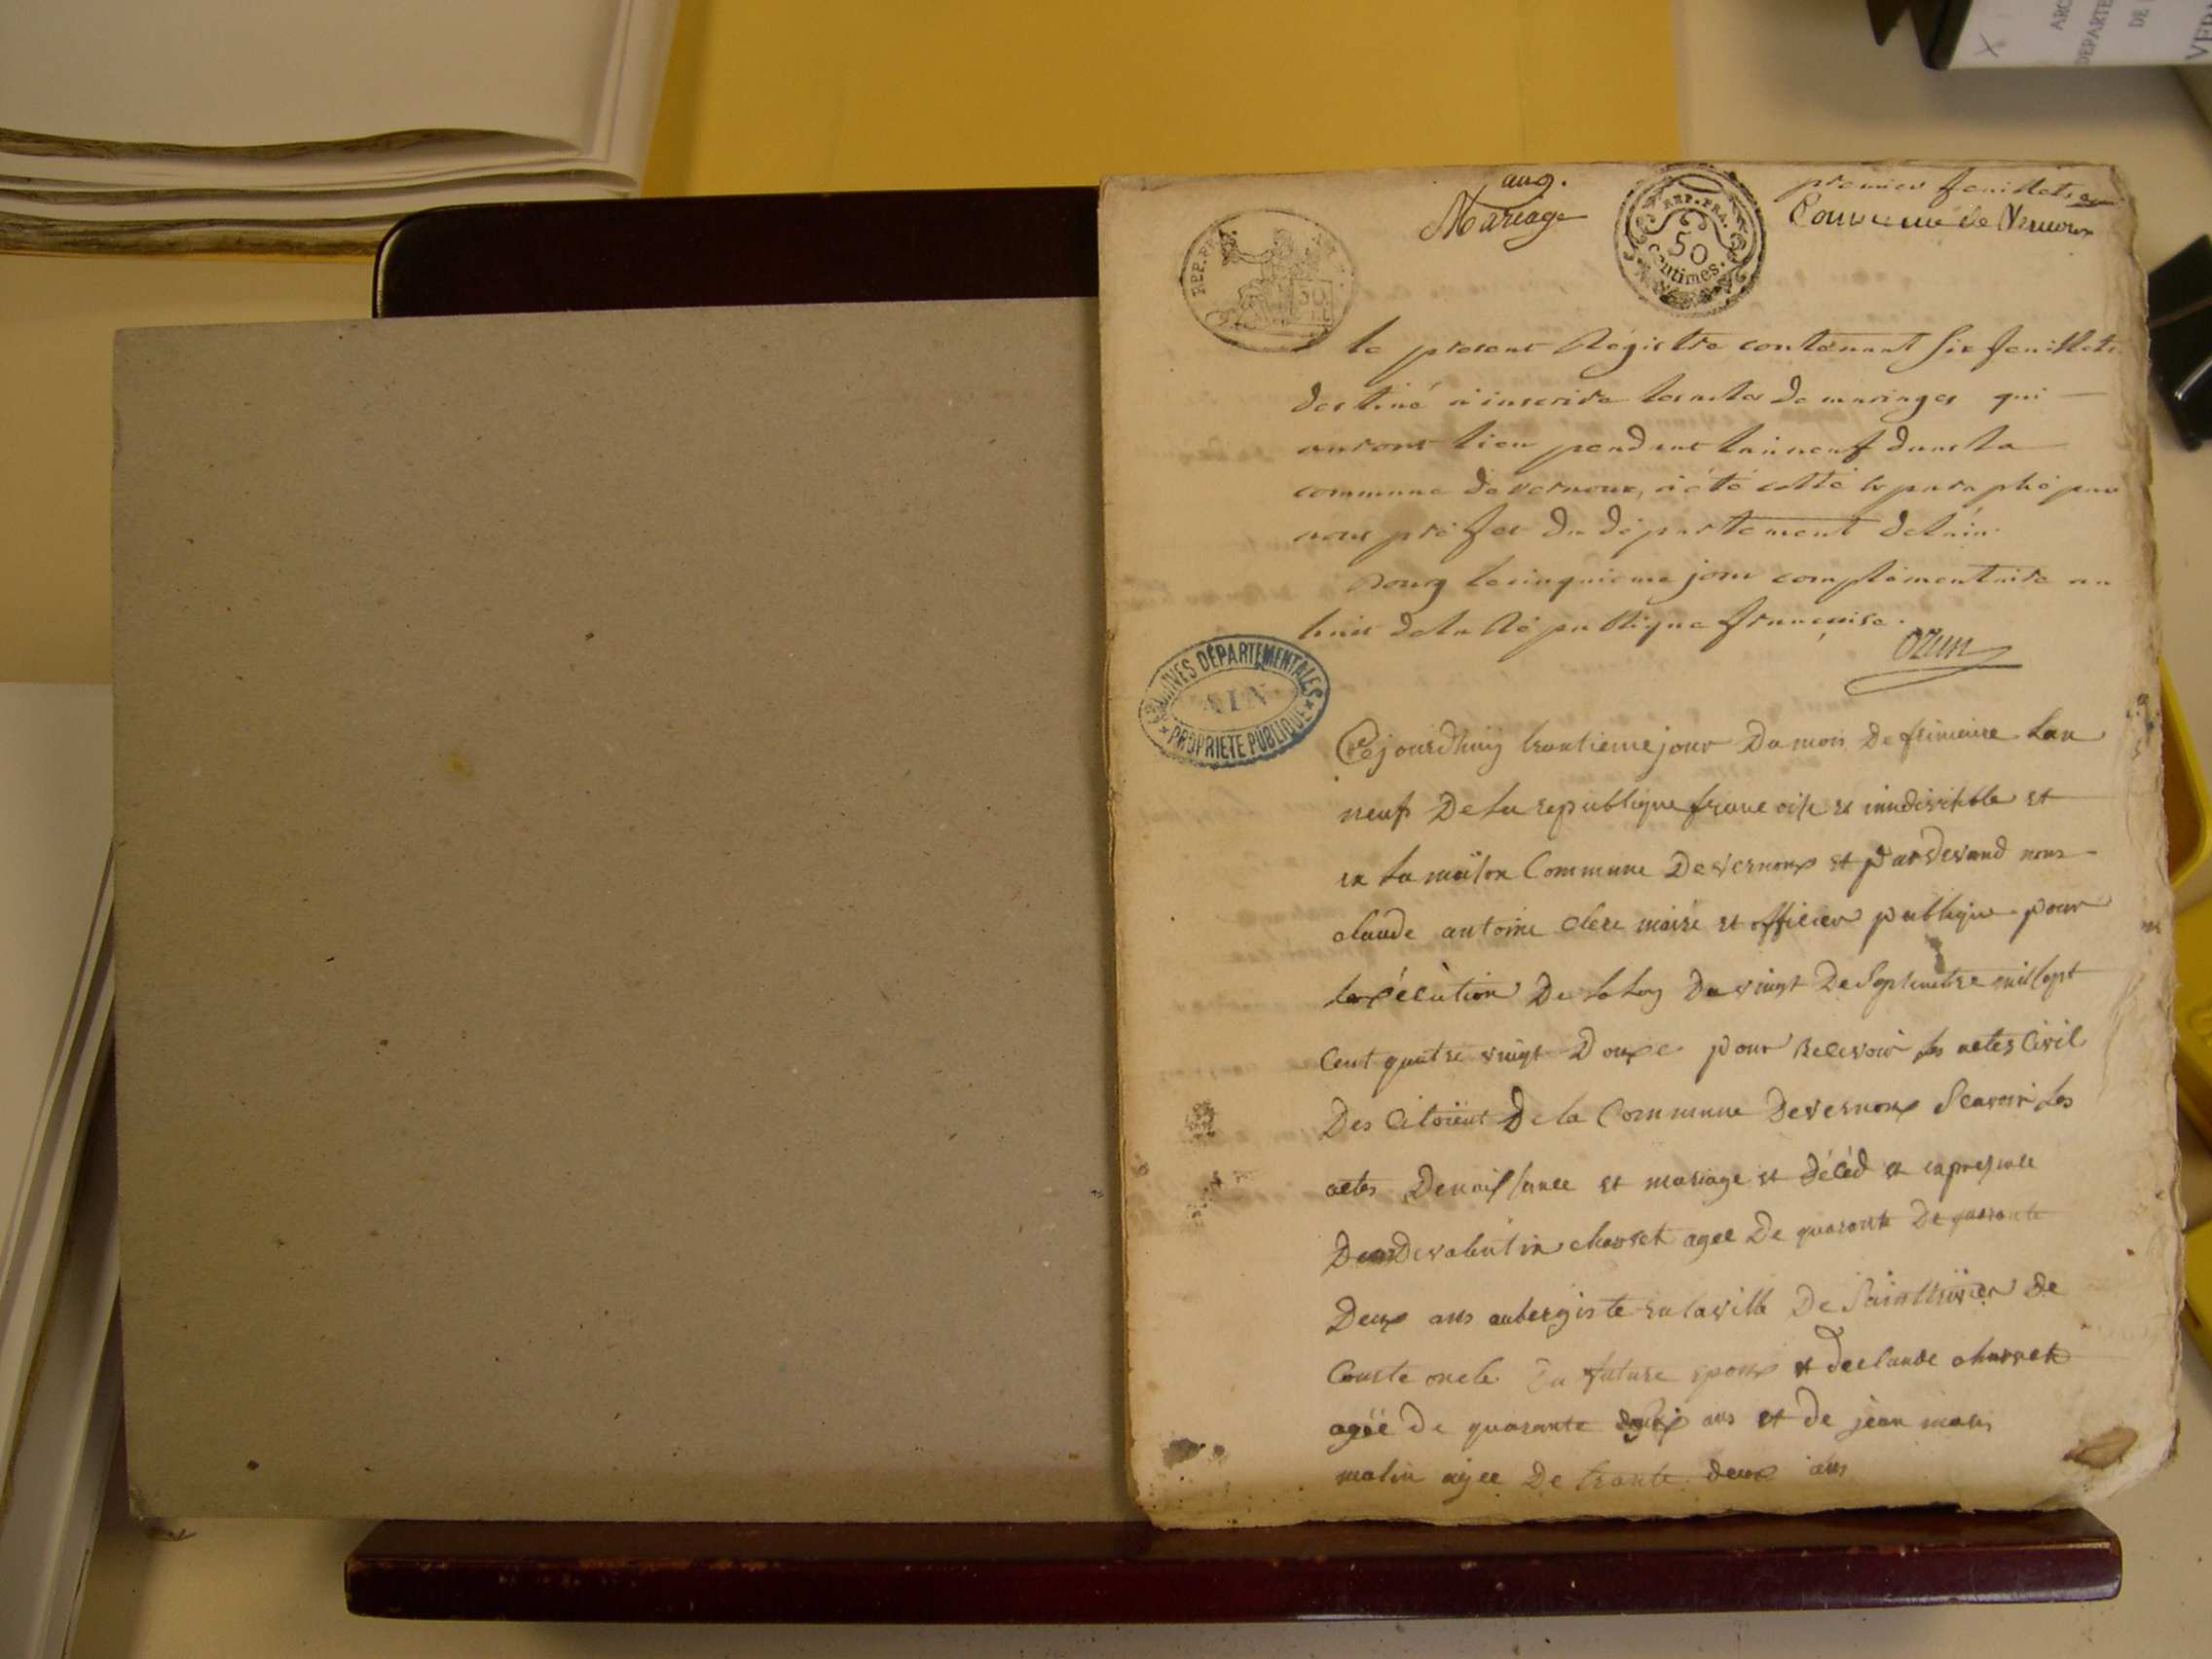 ARC
DEPARTE
DE
VER
X
an 9.
Mariage
REP. FRA.
50
centimes.
REP. FRA.
premier feuillet
Commune de Vernoux
le présent Régistre contenant six feuillets
destiné à inscrire les actes de mariages qui
auront lieu pendant l'an neuf dans la
commune de vernoux, a été cotté et paraphé par
nous préfet du département de l'ain.
Bourg le cinquième jour complémentaire an
huit de la République française.
Ozun
ARCHIVES DÉPARTEMENTALES
AIN
PROPRIÉTÉ PUBLIQUE
Cejourdhuy trantieme jour Du mois De frimaire Lan
neuf De La republique francoise et inndivisible et
en La maison Commune De vernoux et pardevand nous
claude antoine clerc maire et officier publique pour
lexécution De La Loy Du vingt De Septembre mil sept
Cent quatre vingt Douze pour Recevoir Les actes Civil
Des Citoient De la Commune De vernoux Scavoir Les
actes De naissance et mariage et décéd et en presence
De valentin charvet agee De quarante De quarante
Deux ans aubergiste en la ville De Saint trivier de
Courte oncle du future epoux et de claude charvet
agéé De quarante ans et de jean marie
matin agee De trante deux ans